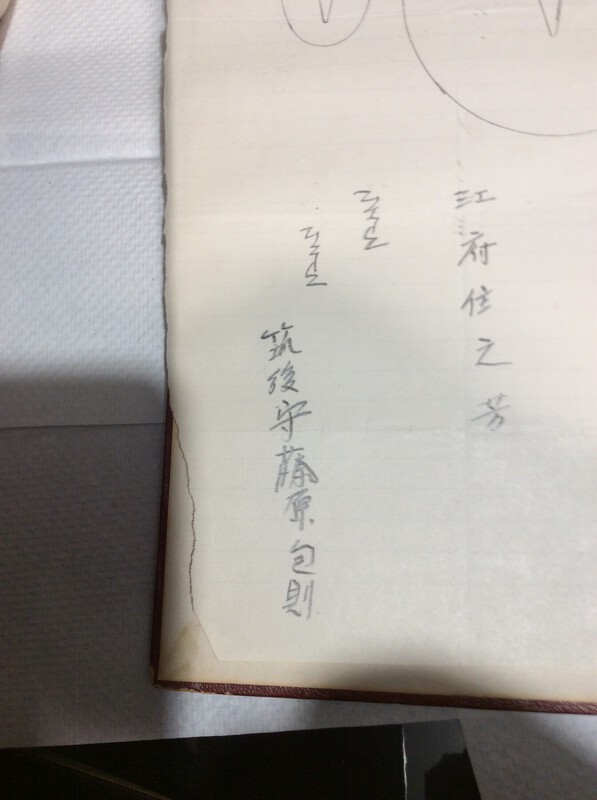 江府住之芳
筑後守藤原包則